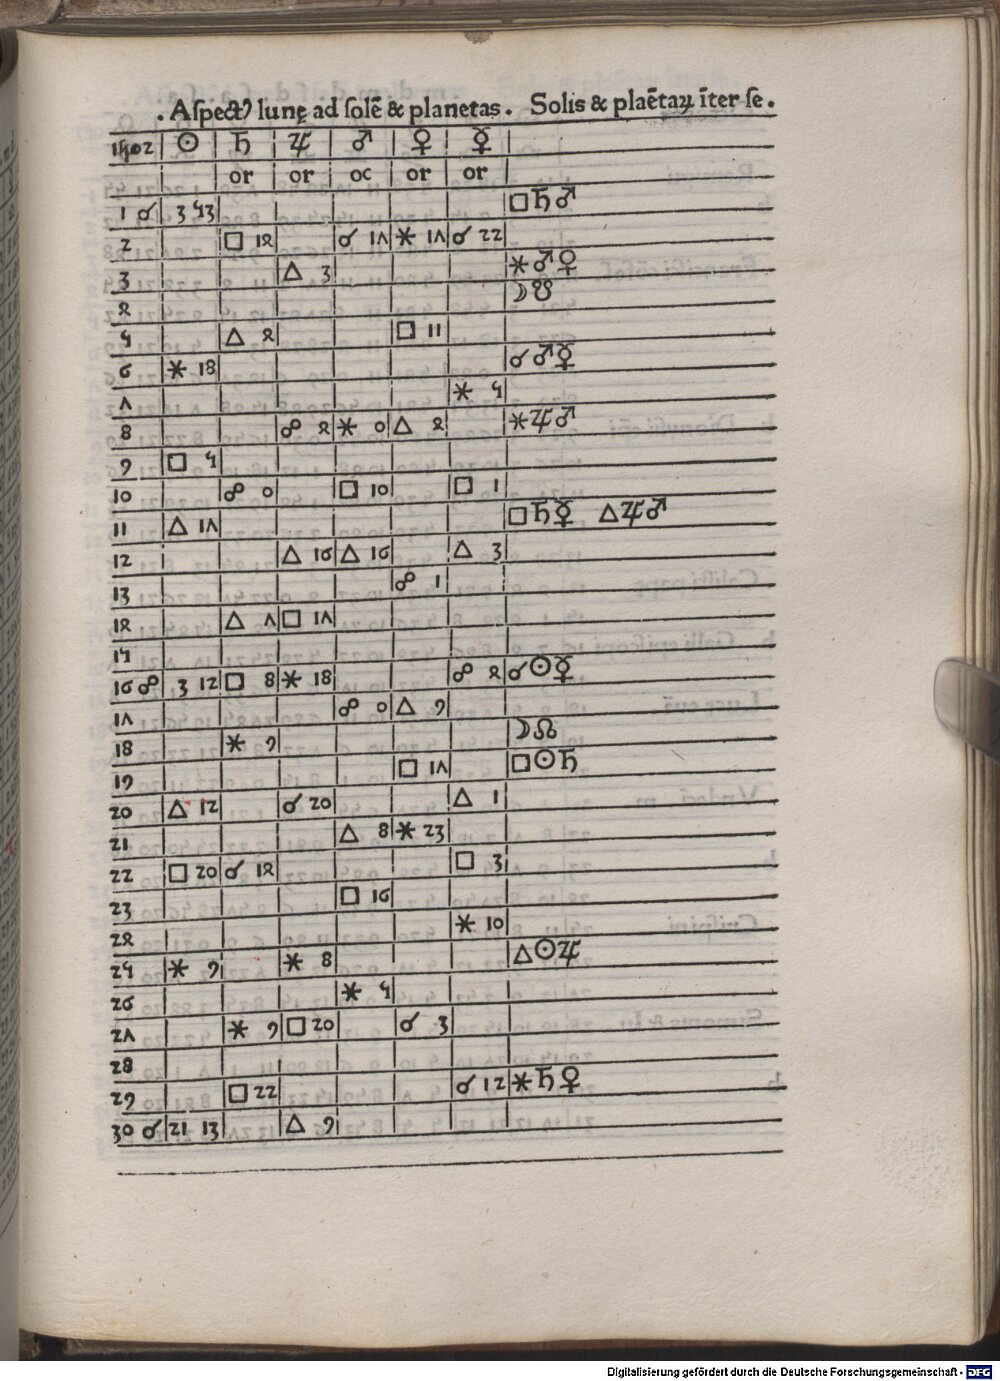 . Aſpectꝰ lunę ad ſolē & planetas . Solis & plaētaꝝ īter ſe .
1502 ☉ ♄ ♃ ♂ ♀ ☿
or or oc or or
1 ☌ 3 53 □♄♂
2 □ 14 ☌ 17 ⚹ 17 ☌ 22
3 △ 3 ⚹♂♀
4 ☽☋
5 △ 4 □ 11
6 ⚹ 18 ☌♂☿
7 ⚹ 5
8 ☍ 4 ⚹ 0 △ 4 ⚹♃♂
9 □ 5
10 ☍ 0 □ 10 □ 1
11 △ 17 □♄☿ △♃♂
12 △ 16 △ 16 △ 3
13 ☍ 1
14 △ 7 □ 17
15
16 ☍ 3 12 □ 8 ⚹ 18 ☍ 4 ☌☉☿
17 ☍ 0 △ 9
18 ⚹ 9 ☽☊
19 □ 17 □☉♄
20 △ 12 ☌ 20 △ 1
21 △ 8 ⚹ 23
22 □ 20 ☌ 14 □ 3
23 □ 16
24 ⚹ 10
25 ⚹ 9 ⚹ 8 △☉♃
26 ⚹ 5
27 ⚹ 9 □ 20 ☌ 3
28
29 □ 22 ☌ 12 ⚹♄♀
30 ☌ 21 13 △ 9
Digitalisierung gefördert durch die Deutsche Forschungsgemeinschaft - DFG